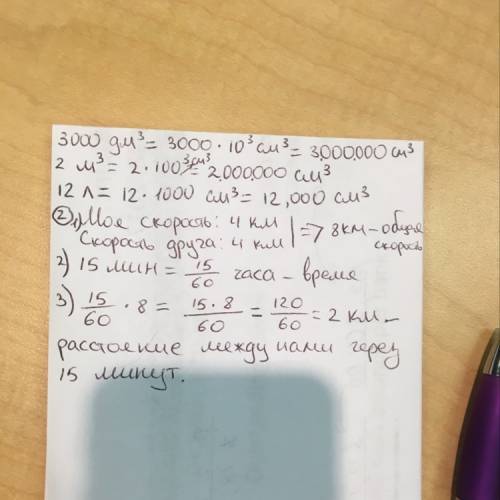 3000 дм³ = 3000 · 10³ см³ = 3,000,000 см³
2 м³ = 2 · 100³ см³ = 2,000,000 см³
12 л = 12 · 1000 см³ = 12,000 см³
② 1) Моя скорость: 4 км | => 8 км – общая
Скорость друга: 4 км | скорость
2) 15 мин = 15/60 часа – время
3) 15/60 · 8 = 15 · 8/60 = 120/60 = 2 км –
расстояние между нами через
15 минут.